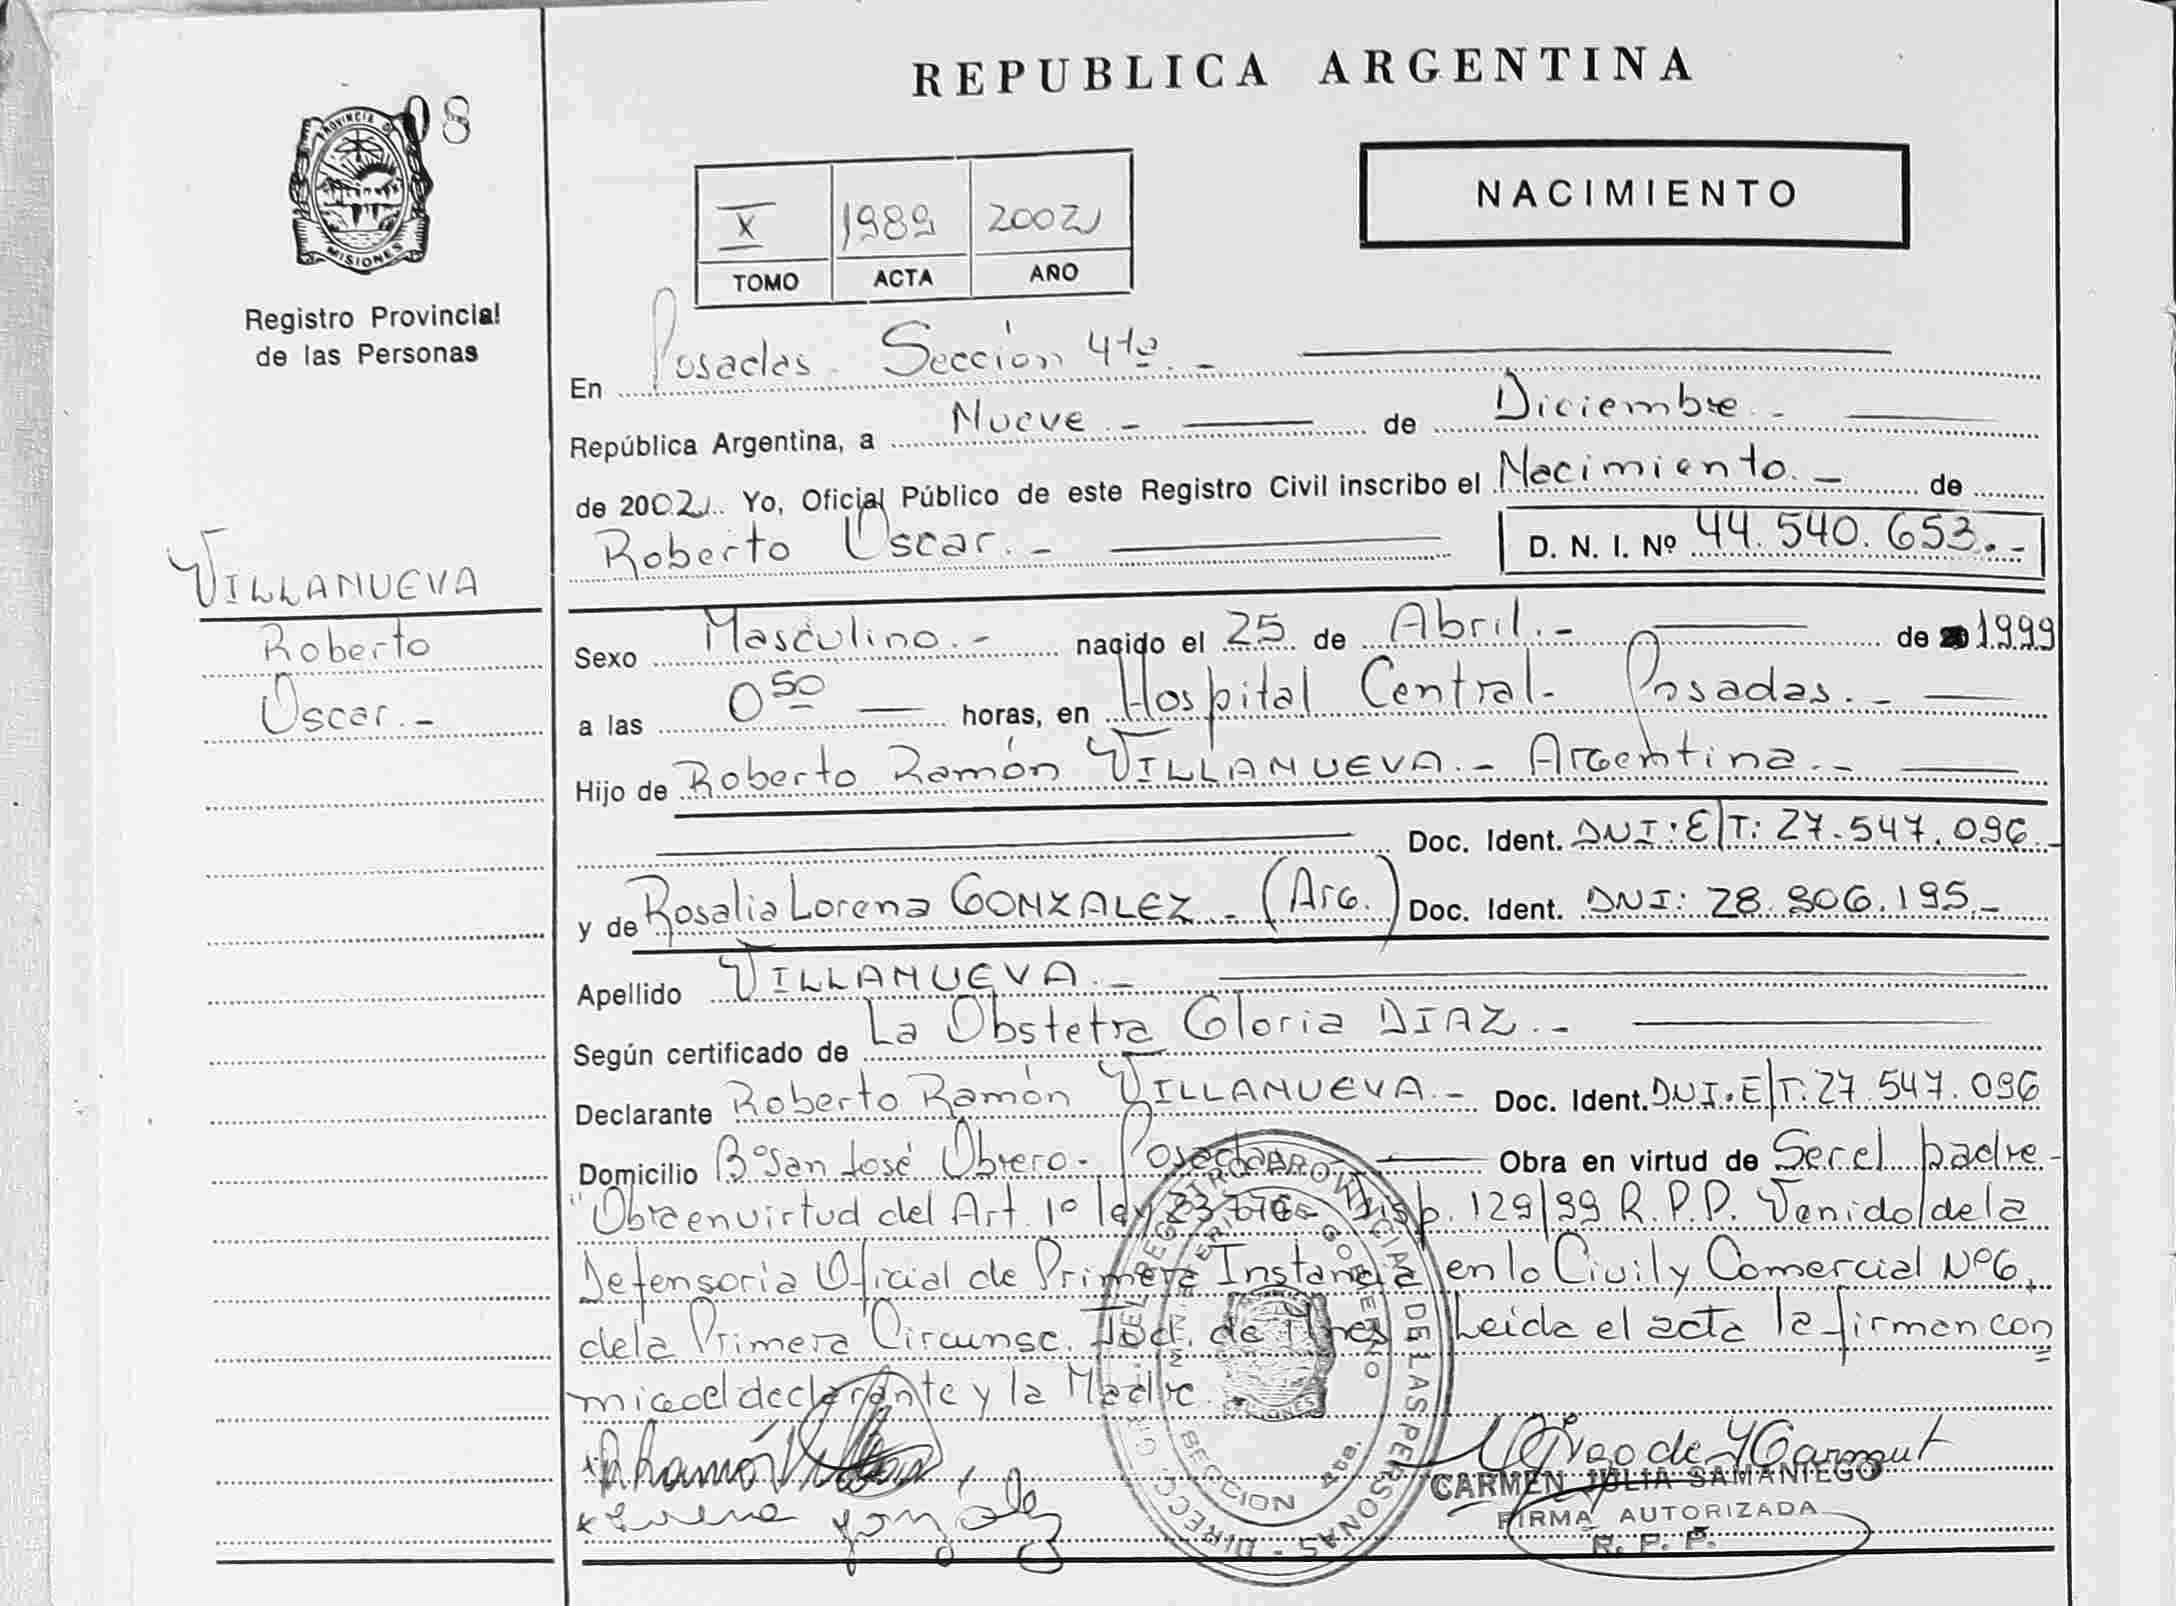 REPUBLICA ARGENTINA
08
PROVINCIA DE
MISIONES
Registro Provincial
de las Personas
NACIMIENTO
X 1989 2002
TOMO ACTA AÑO
En Posadas. Sección 4ta.-
República Argentina, a Nueve.- de Diciembre.-
de 2002. Yo, Oficial Público de este Registro Civil inscribo el Nacimiento.- de
Roberto Oscar.- D. N. I. Nº 44.540.653.-
VILLANUEVA
Roberto
Oscar.-
Sexo Masculino.- nacido el 25 de Abril.- de 1999
a las 0 50 horas, en Hospital Central- Posadas.-
Hijo de Roberto Ramón VILLANUEVA.- Argentina.-
Doc. Ident. DNI: E/T: 27.547.096.-
y de Rosalia Lorena GONZALEZ.- (Arg.) Doc. Ident. DNI: 28.806.195.-
Apellido VILLANUEVA.-
Según certificado de La Obstetra Gloria DIAZ.-
Declarante Roberto Ramón VILLANUEVA.- Doc. Ident. DNI. E/T. 27.547.096
Domicilio Bº San José Obrero- Posadas Obra en virtud de Ser el padre-
"Obra en virtud del Art. 1º ley Disp. 129/99 R.P.P. Venido de la
Defensoria Oficial de Primera Instancia en lo Civil y Comercial Nº6,
de la Primera Circunsc. Jud. de Mnes Leida el acta la firman con
migo el declarante y la Madre.
DIRECC. GRAL. DEL REGISTRO PROVINCIAL DE LAS PERSONAS
GOBIERNO
SECCION 4ta.
Ramón
Lorena González
CARMEN JULIA SAMANIEGO
FIRMA AUTORIZADA
R. P. P.